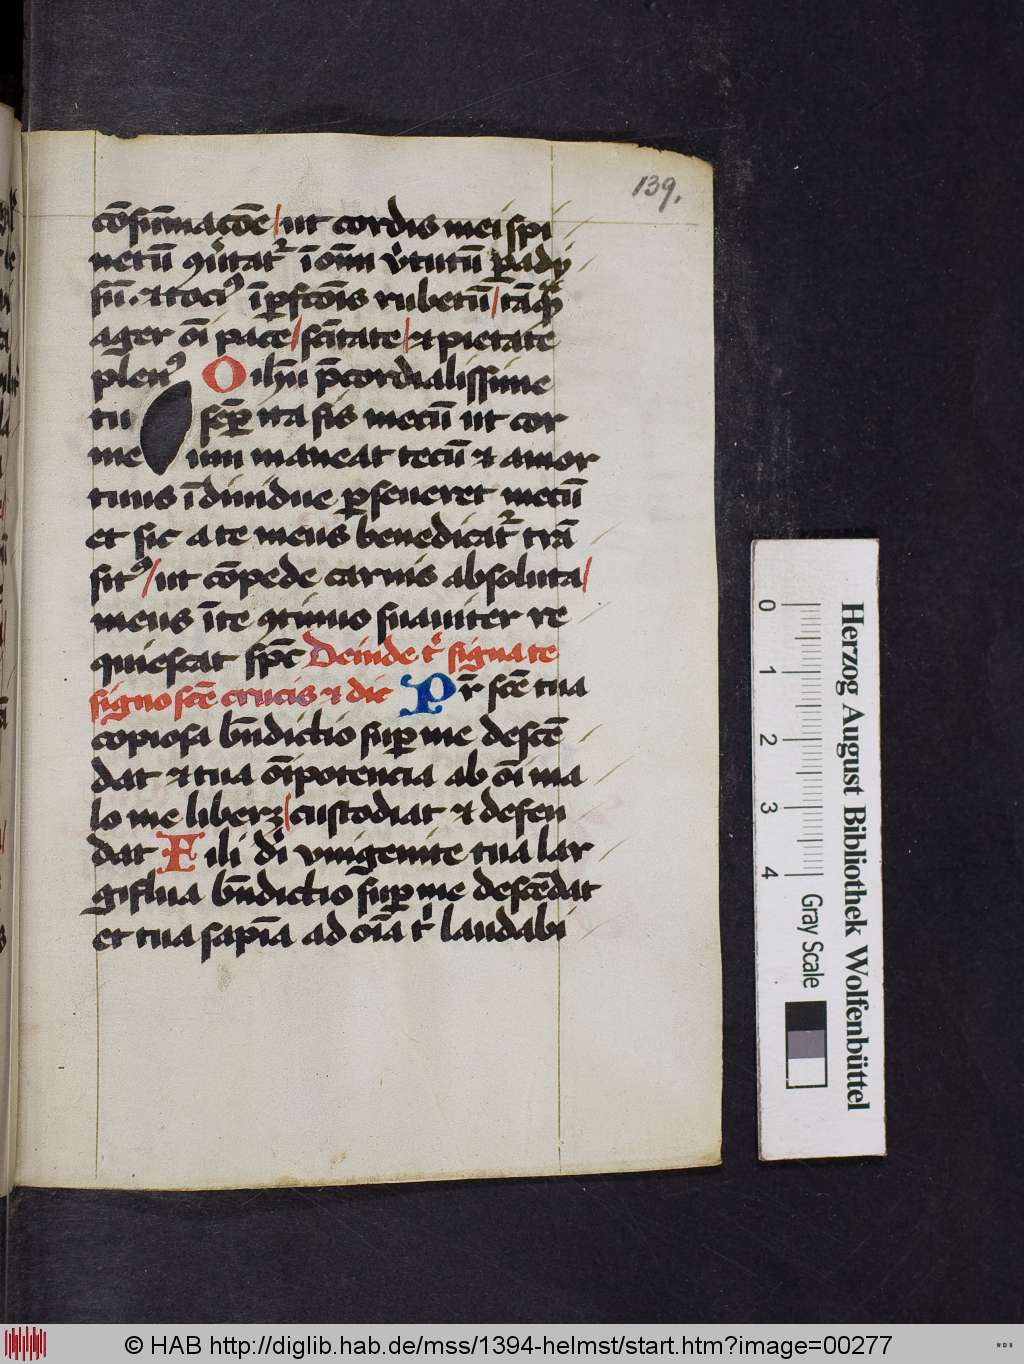 139.
cōsūmacōe / ut cordis mei spi
netū ꝯu̓tat᷑ ī om̄i v̓tutū ꝑady
sū ⁊ toci⁹ īꝑfcōis rubetū / tāqᷓ
ager oī pace / scītate / ⁊ pietate
plen⁹ O ihū p̄cordialissime
tu sēꝑ ita sis mecū ut cor
me um maneat tecū ⁊ amor
tuus īdiuidue ꝑseueret mecū
et sic a te meus benedicat᷑ trā
sit⁹ / ut cōpede carnis absoluta /
meus īte ꝯtinuo suauiter re
quiescat sp̄c Deinde t̓ signa te
signo scē crucis ⁊ dic Pr̄ scē tua
copiosa bn̄dictio suꝑ me descē
dat ⁊ tua oīpotencia ab oī ma
lo me liberꝫ / custodiat ⁊ defen
dat Fili dī vnigenite tua lar
giflua bn̄dictio suꝑ me descēdat
et tua sapīa ad oīa t̓ laudabi
Herzog August Bibliothek Wolfenbüttel
0 1 2 3 4
Gray Scale
© HAB http://diglib.hab.de/mss/1394-helmst/start.htm?image=00277